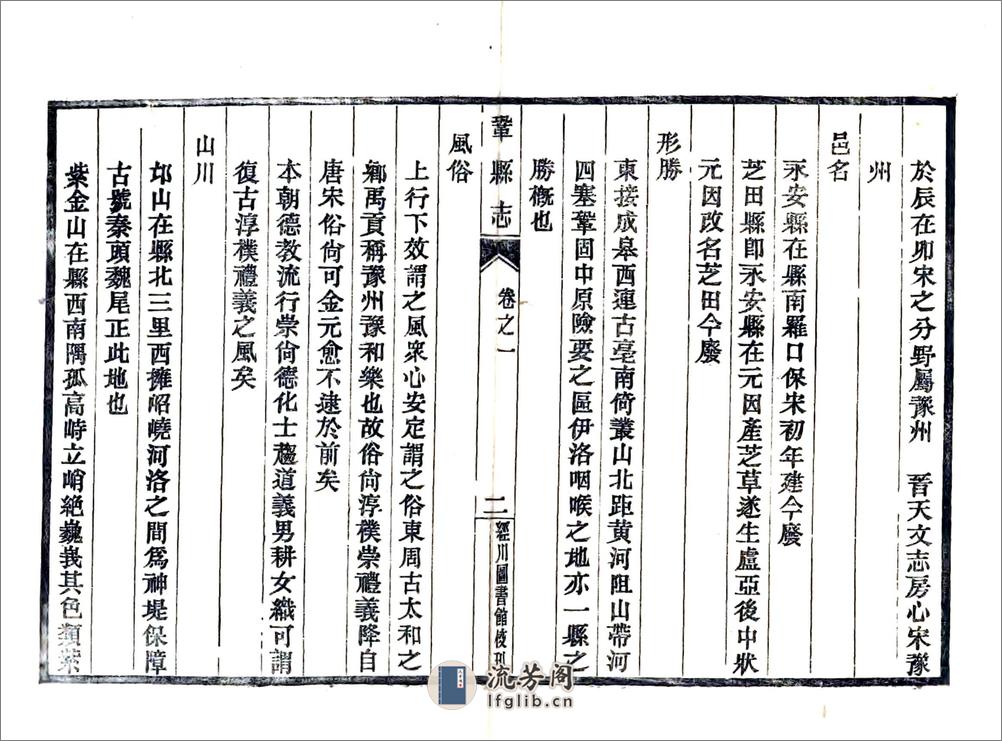 於辰在卯宋之分野屬豫州　晉天文志房心宋豫
州
邑名
永安縣在縣南羅口保宋初年建今廢
芝田縣卽永安縣在元因產芝草遂生盧亞後中狀
元因改名芝田今廢
形勝
東接成皋西連古亳南倚叢山北距黄河阻山帶河
四塞鞏固中原險要之區伊洛咽喉之地亦一縣之
勝槪也
鞏縣志
卷之一
二
經川圖書館校刊
風俗
上行下效謂之風衆心安定謂之俗東周古太和之
鄉禹貢稱豫州豫和樂也故俗尙淳樸崇禮義降自
唐宋俗尙可金元愈不逮於前矣
本朝德教流行崇尙德化士趨道義男耕女織可謂
復古淳樸禮義之風矣
山川
邙山在縣北三里西擁崤嶢河洛之間爲神堤保障
古號秦頭魏尾正此地也
紫金山在縣西南隅孤高峙立峭絕巍峩其色類紫
流芳阁
lfglib.cn